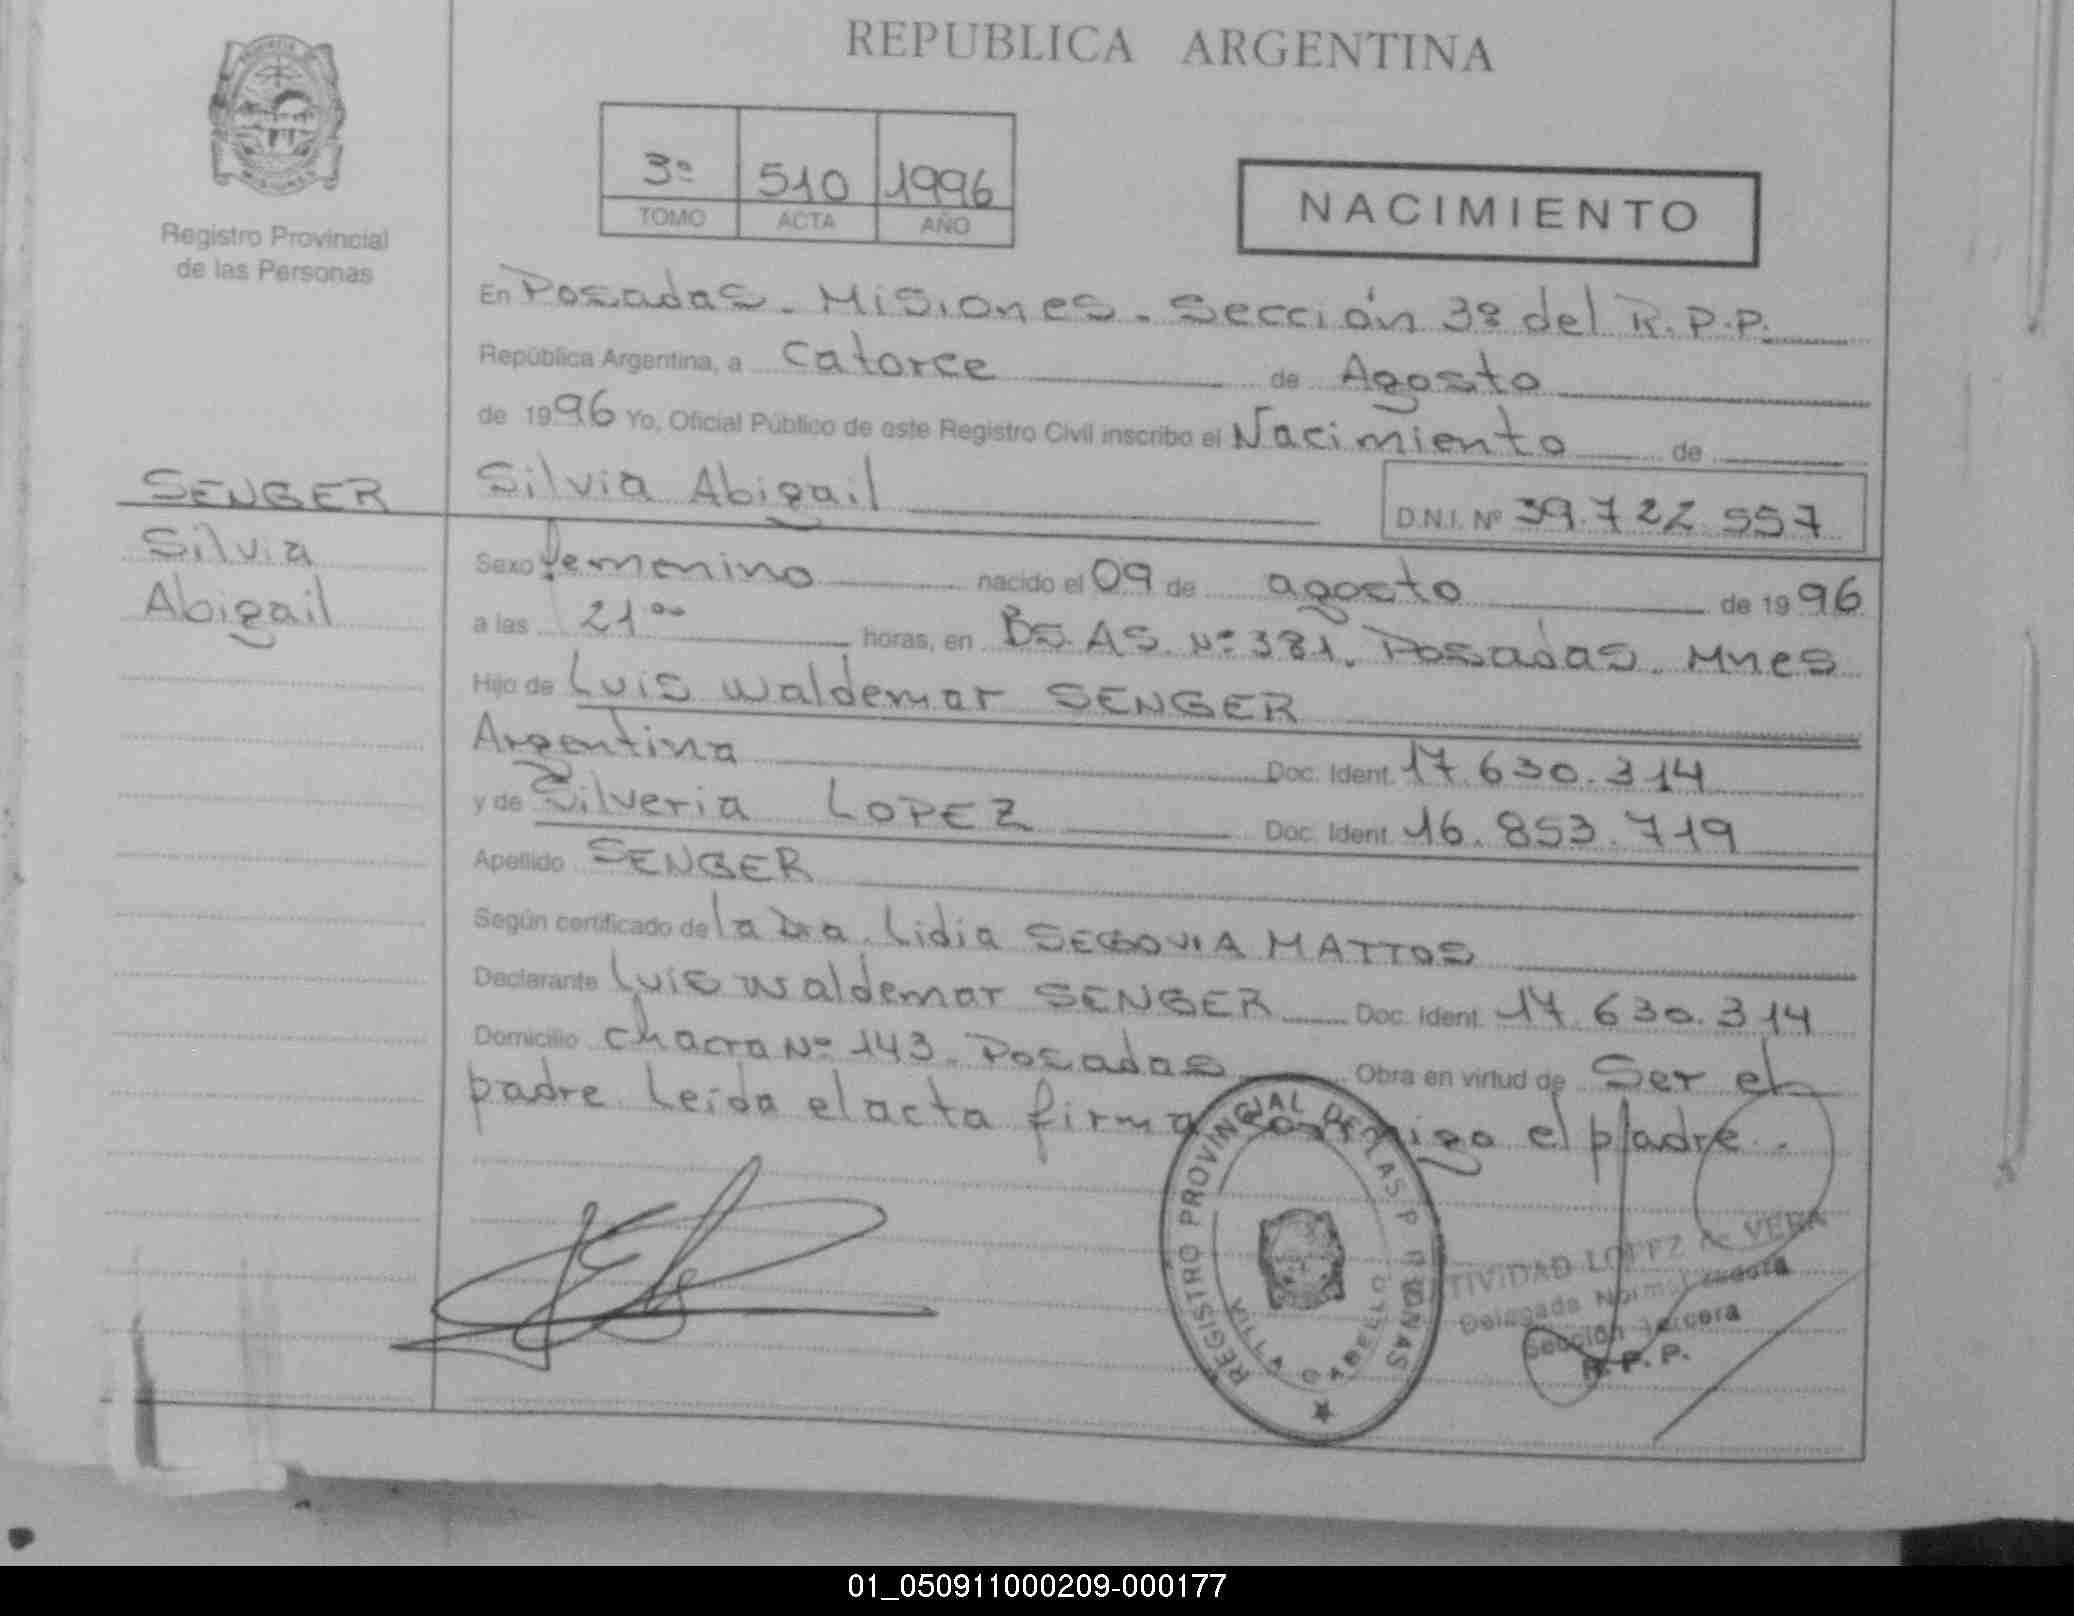 REPUBLICA ARGENTINA
Registro Provincial
de las Personas
3º 510 1996
TOMO ACTA AÑO
NACIMIENTO
En Posadas - Misiones - Sección 3º del R.P.P.
República Argentina, a Catorce de Agosto
de 1996 Yo, Oficial Público de este Registro Civil inscribo el Nacimiento de
SENGER
Silvia
Abigail
Silvia Abigail D.N.I. Nº 39.722.557
Sexo femenino nacido el 09 de agosto de 1996
a las 21 ºº horas, en BS. AS. Nº 381. Posadas. Mnes
Hijo de Luis Waldemar SENGER
Argentina Doc. Ident. 17.630.314
y de Silveria LOPEZ Doc. Ident. 16.853.719
Apellido SENGER
Según certificado de la Dra. Lidia SEGOVIA MATTOS
Declarante Luis Waldemar SENGER Doc. Ident. 17.630.314
Domicilio Chacra Nº 143. Posadas Obra en virtud de Ser el
padre Leída el acta firma conmigo el padre.
REGISTRO PROVINCIAL DE LAS PERSONAS
VILLA CABELLO
TIVIDAD LOPEZ de VERA
Delegada Normalizadora
Sección Tercera
R. P. P.
01_050911000209-000177